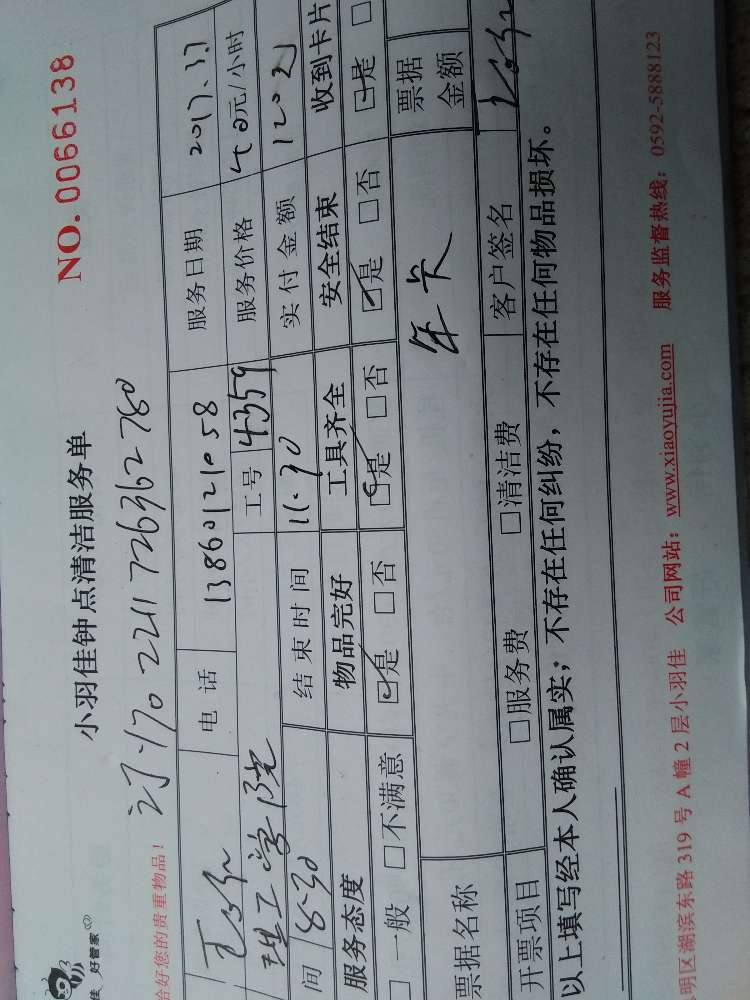 佳 好管家
小羽佳钟点清洁服务单
NO. 0066138
合好您的贵重物品!
电 话 13860121058 服务日期 2017.3.7
理工学院 工号 4359 服务价格 40元/小时
间 8:30 结束时间 11.30 实付金额 120元
服务态度 物品完好 工具齐全 安全结束 收到卡片
□ 一般 □不满意 ☑是 □否 ☑是 □否 ☑是 □否 ☑是 □
票据名称 年卡 票据金额
开票项目 □服务费 □清洁费 客户签名
以上填写经本人确认属实;不存在任何纠纷,不存在任何物品损坏。
明区湖滨东路 319 号 A 幢 2 层小羽佳 公司网站: www.xiaoyujia.com 服务监督热线: 0592-5888123